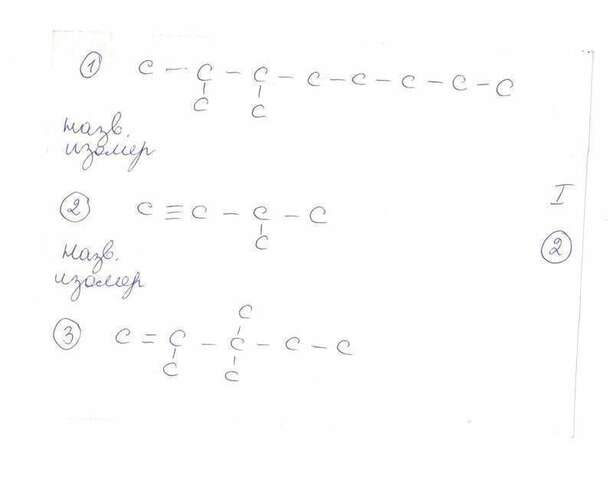 ① C – C – C – C – C – C – C – C
C C
назв.
изомер
② C ≡ C – C – C
C
I
②
назв.
изомер
C
③ C = C – C – C – C
C C